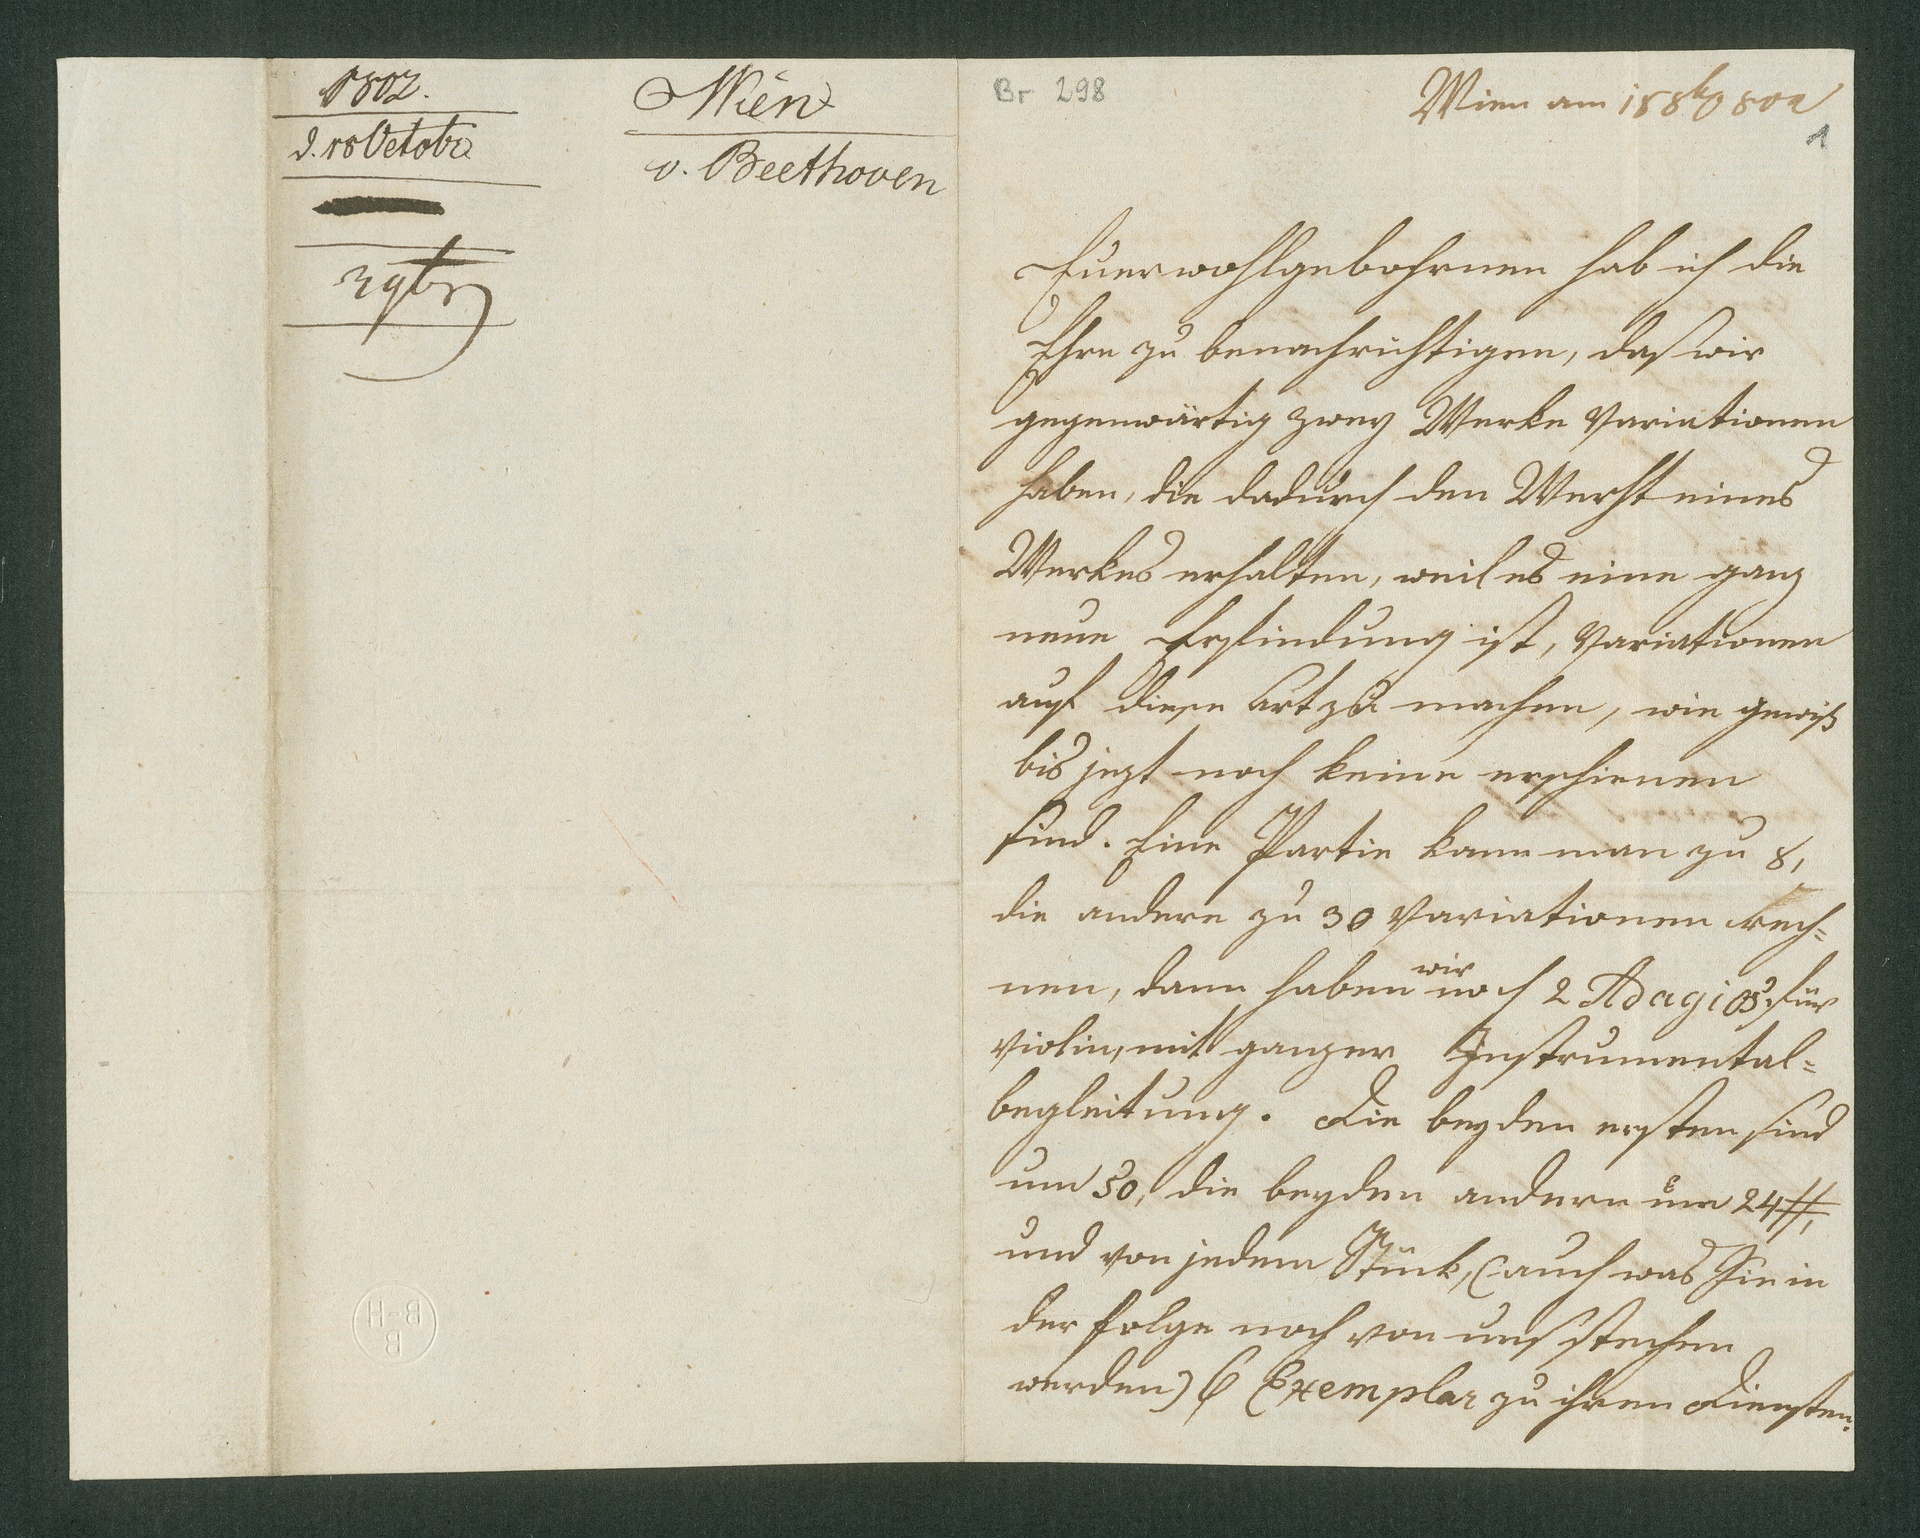 1802.
d. 18 Octobr
Wien
v. Beethoven
Br 298
Wien am 188br 802
1
Euer wohlgebohrnen hab ich die
Ehre zu benachrichtigen, daß wir
gegenwärtig zwey Werke Variationen
haben, die dadurch den Werht eines
Werkes erhalten, weil es eine ganz
neue Erfindung ist, Variationen
auf diese Art zu machen, wie gewiß
bis jezt noch keine erschienen
sind. Eine Partie kann man zu 8,
die andere zu 30 Variationen rech=
nen, dann haben wir noch 2 Adagios für
Violin, mit ganzer Instrumental=
begleitung. Die beyden ersten sind
um 50, die beyden andern um 24 #,
und von jedem Stück, (auch was Sie in
der folge noch von uns stechen
werden) 6 Exemplar zu ihren Diensten.
B-H
B